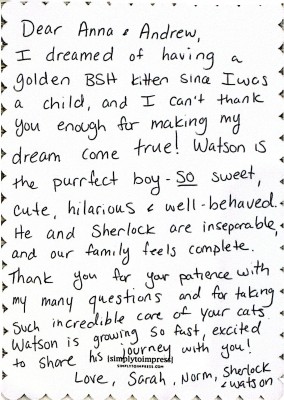 Dear Anna & Andrew,
I dreamed of having a
golden BSH kitten since I was
a child, and I can't thank
you enough for making my
dream come true! Watson is
the purrfect boy - SO sweet,
cute, hilarious & well-behaved.
He and Sherlock are inseparable,
and our family feels complete.
Thank you for your patience with
my many questions and for taking
such incredible care of your cats.
Watson is growing so fast, excited
to share his journey with you!
|simplytoimpress|
SIMPLYTOIMPRESS.COM
Love, Sarah, Norm, Sherlock
& Watson